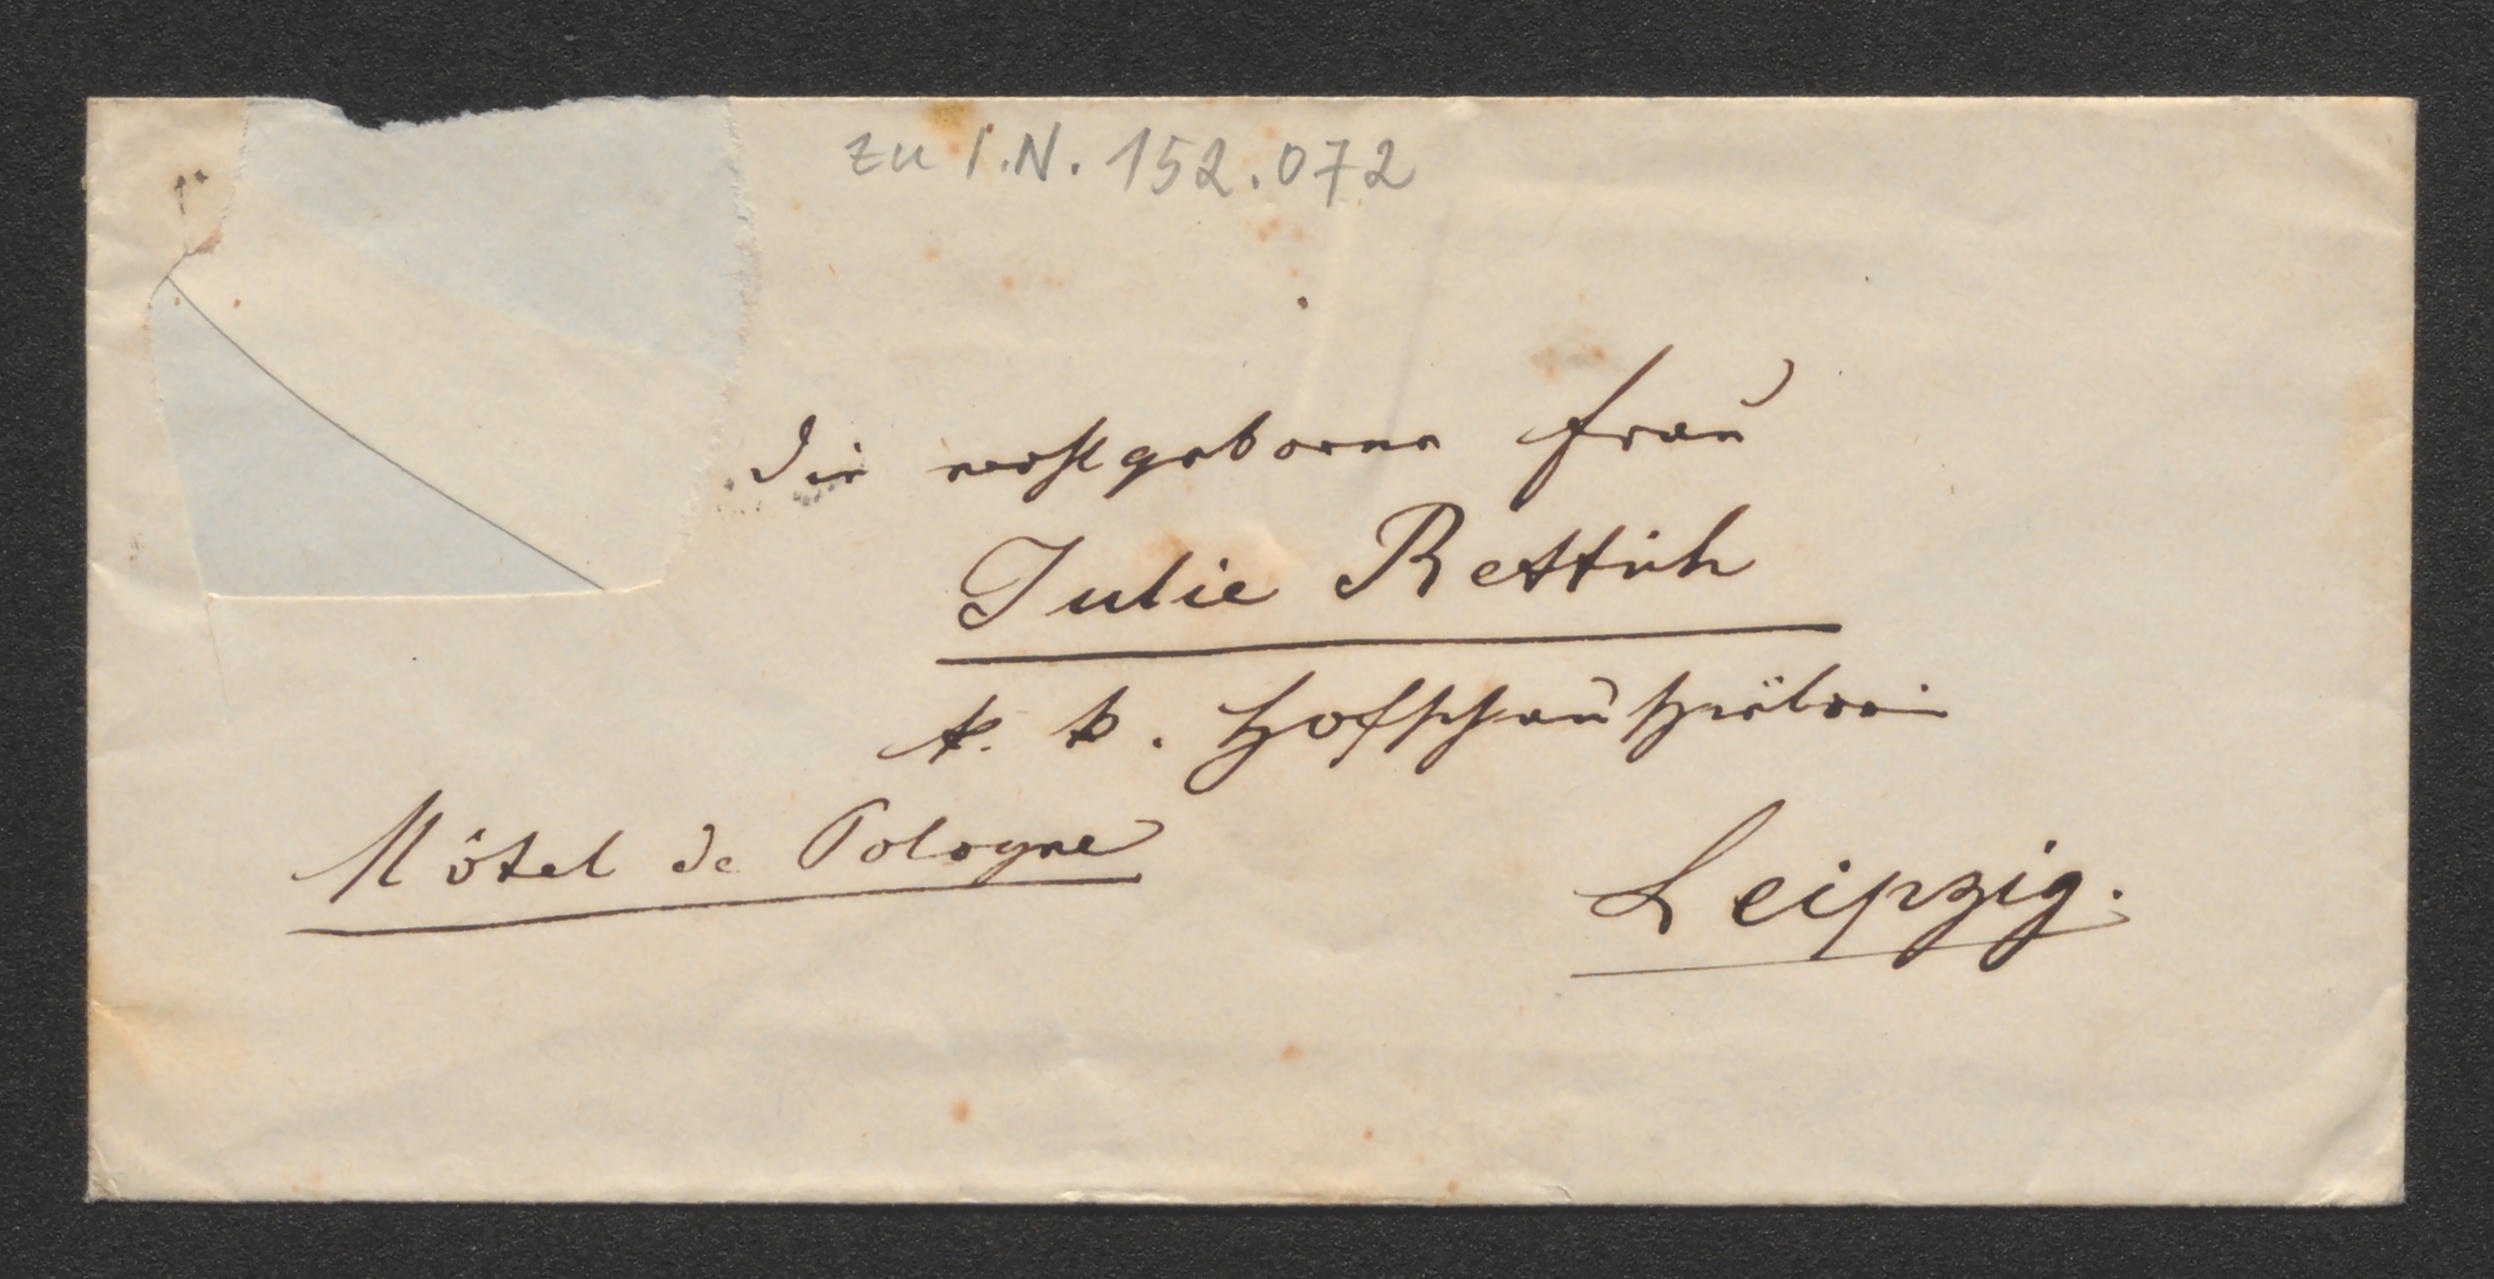 zu I.N. 152.072
die wohlgeborne Frau
Julie Rettich
k. k. Hofschauspielerin
Hôtel de Pologne
Leipzig.